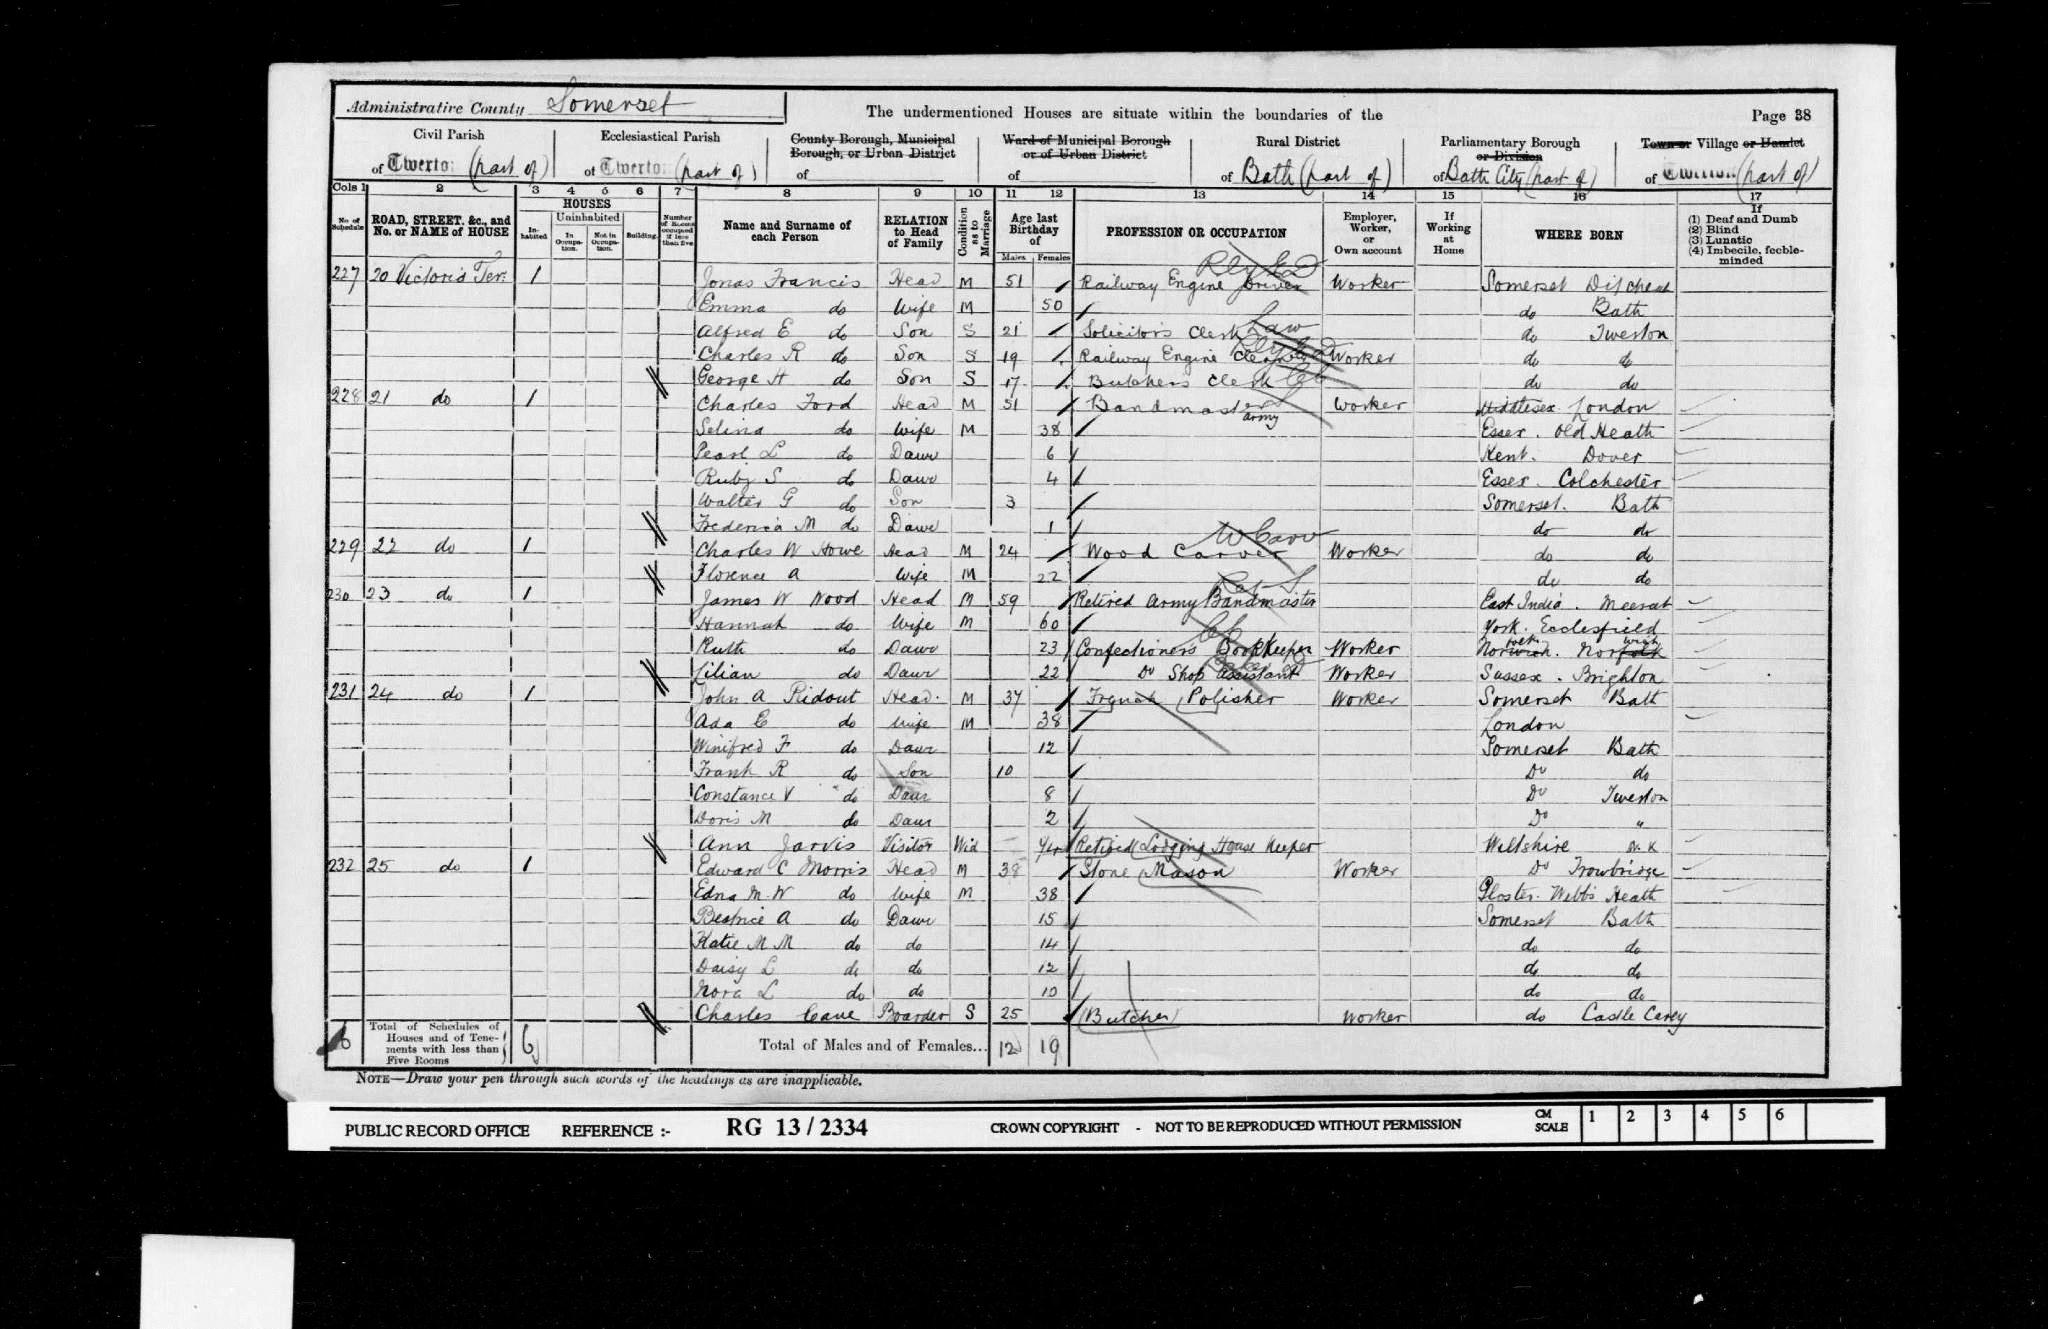 Administrative County Somerset
The undermentioned Houses are situate within the boundaries of the
Page 38
Civil Parish
of Twerton (part of)
Ecclesiastical Parish
of Twerton (part of)
County Borough, Municipal Borough, or Urban District
of
Ward of Municipal Borough or of Urban District
of
Rural District
of Bath (part of)
Parliamentary Borough or Division
of Bath City (part of)
Town or Village or Hamlet
of Twerton (part of)
Cols 1 2 3 4 5 6 7 8 9 10 11 12 13 14 15 16 17
No. of Schedule
ROAD, STREET, &c., and No. or NAME of HOUSE
HOUSES
Inhabited
Uninhabited
In Occupation.
Not in Occupation.
Building.
Number of Rooms occupied if less than five
Name and Surname of each Person
RELATION to Head of Family
Condition as to Marriage
Age last Birthday of
Males
Females
PROFESSION OR OCCUPATION
Employer, Worker, or Own account
If Working at Home
WHERE BORN
If (1) Deaf and Dumb (2) Blind (3) Lunatic (4) Imbecile, feeble-minded
227 20 Victoria Ter. 1 Jonas Francis Head M 51 Railway Engine Driver Worker Somerset Ditcheat
Emma do Wife M 50 do Bath
Alfred E do Son S 21 Solicitor's Clerk Law do Twerton
Charles R do Son S 19 Railway Engine Cleaner Worker do do
George H do Son S 17 Butchers Clerk do do
228 21 do 1 Charles Ford Head M 51 Bandmaster Army Worker Middlesex London
Selina do Wife M 38 Essex. Old Heath
Pearl L do Daur 6 Kent. Dover
Ruby S do Daur 4 Essex. Colchester
Walter G do Son 3 Somerset. Bath
Frederica M do Daur 1 do do
229 22 do 1 Charles W Howe Head M 24 Wood Carver W Carv Worker do do
Florence A Wife M 22 do do
230 23 do 1 James W Wood Head M 59 Retired Army Bandmaster East India. Meerat
Hannah do Wife M 60 York. Ecclesfield
Ruth do Daur 23 Confectioners Bookkeeper Worker Norwich. Norfolk
Lilian do Daur 22 Do Shop assistant Worker Sussex. Brighton
231 24 do 1 John A Ridout Head. M 37 French Polisher Worker Somerset Bath
Ada E do Wife M 38 London
Winifred F do Daur 12 Somerset Bath
Frank R do Son 10 Do do
Constance V do Daur 8 Do Twerton
Doris M do Daur 2 Do "
Ann Jarvis Visitor Wid Retired Lodging House Keeper Wiltshire N.K
232 25 do 1 Edward C Morris Head M 38 Stone Mason Worker Do Trowbridge
Edna M. W do Wife M 38 Gloster. Webb's Heath
Beatrice A do Daur 15 Somerset Bath
Katie M M do do 14 do do
Daisy L do do 12 do do
Nora L do do 10 do do
Charles Cave Boarder S 25 (Butcher) Worker do Castle Carey
6 Total of Schedules of Houses and of Tenements with less than Five Rooms 6 Total of Males and of Females... 12 19
NOTE—Draw your pen through such words of the headings as are inapplicable.
PUBLIC RECORD OFFICE REFERENCE :- RG 13/2334 CROWN COPYRIGHT - NOT TO BE REPRODUCED WITHOUT PERMISSION CM SCALE 1 2 3 4 5 6